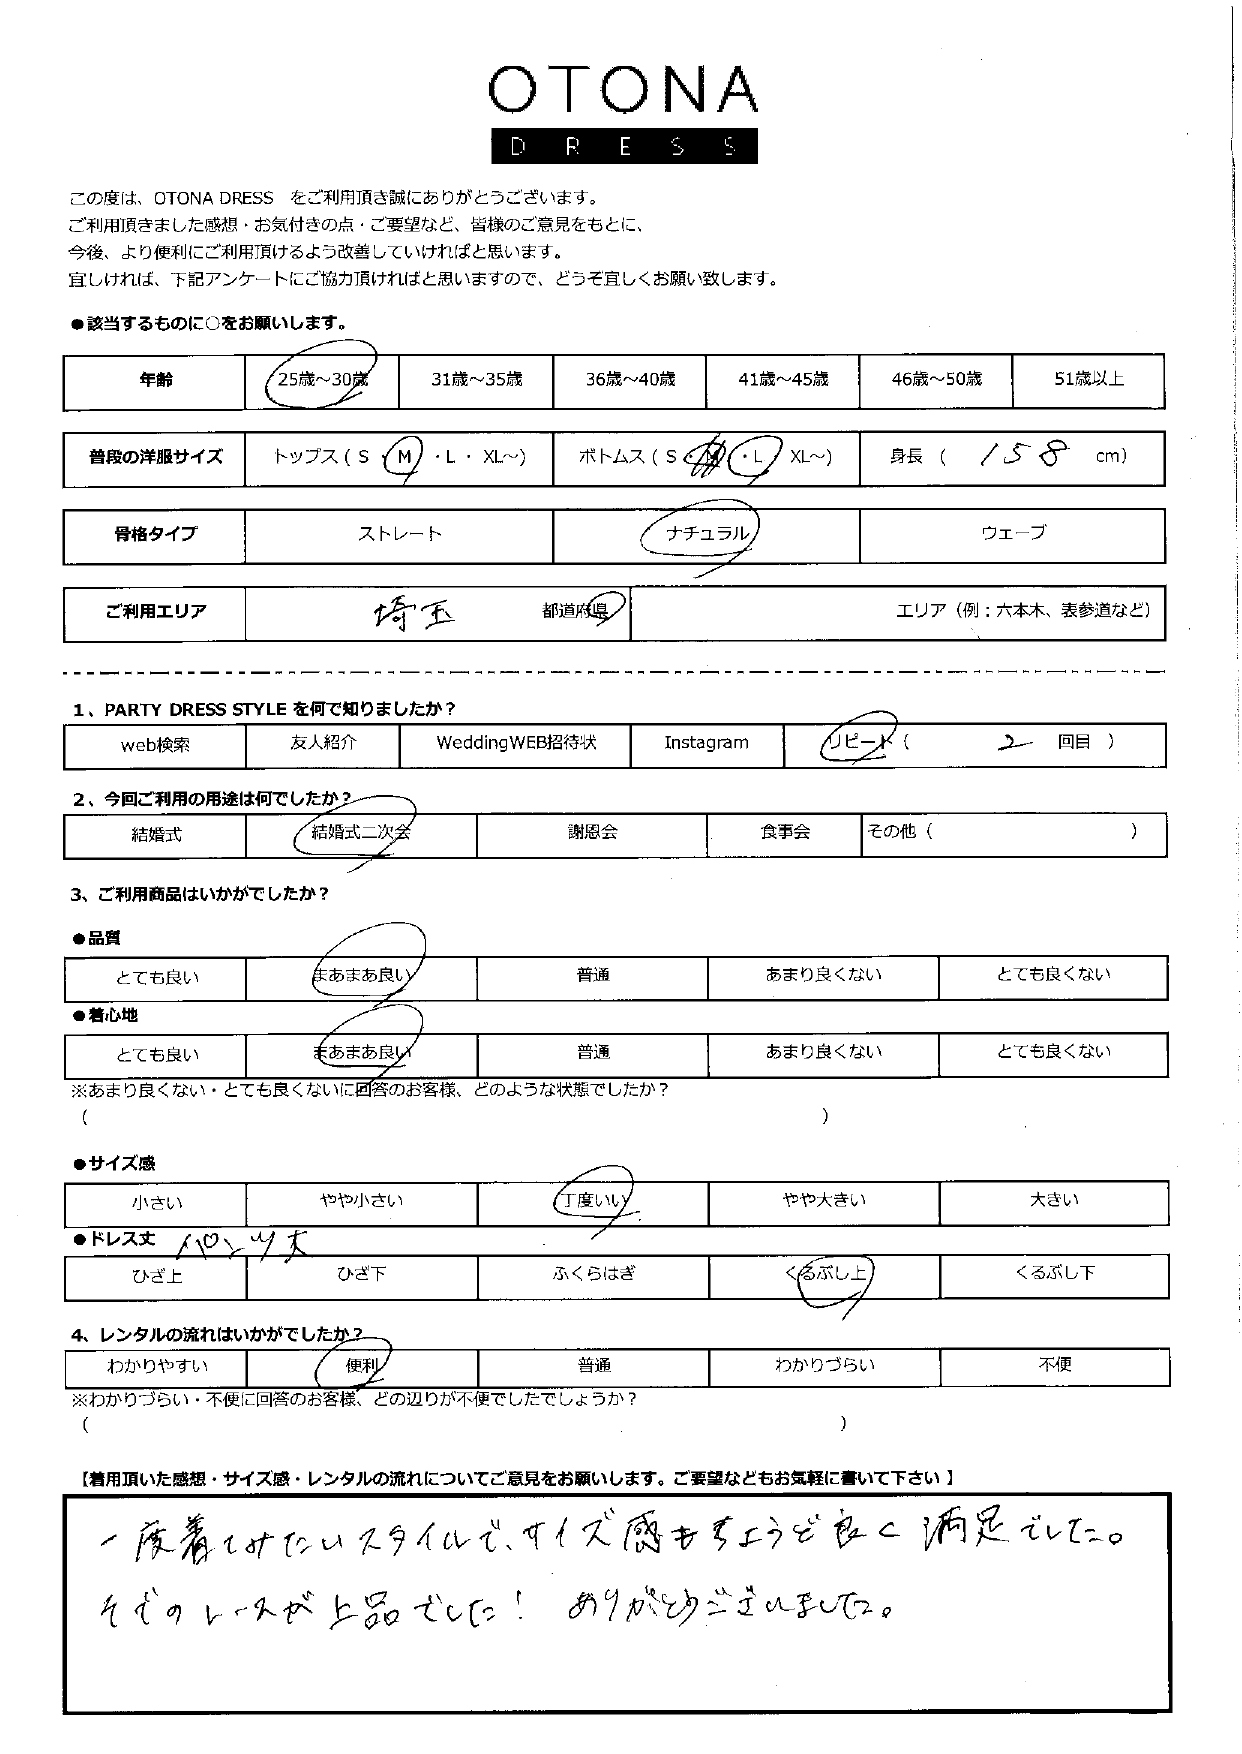 OTONA
DRESS
この度は、OTONA DRESS をご利用頂き誠にありがとうございます。
ご利用頂きました感想・お気付きの点・ご要望など、皆様のご意見をもとに、
今後、より便利にご利用頂けるよう改善していければと思います。
宜しければ、下記アンケートにご協力頂ければと思いますので、どうぞ宜しくお願い致します。
●該当するものに○をお願いします。
年齢 25歳～30歳 31歳～35歳 36歳～40歳 41歳～45歳 46歳～50歳 51歳以上
普段の洋服サイズ トップス ( S ・ M ・ L ・ XL～) ボトムス ( S ・ M ・ L XL～) 身長 ( 158 cm)
骨格タイプ ストレート ナチュラル ウェーブ
ご利用エリア 埼玉 都道府県 エリア（例：六本木、表参道など）
1、PARTY DRESS STYLE を何で知りましたか？
web検索 友人紹介 WeddingWEB招待状 Instagram リピート ( 2 回目 )
2、今回ご利用の用途は何でしたか？
結婚式 結婚式二次会 謝恩会 食事会 その他 ( )
3、ご利用商品はいかがでしたか？
●品質
とても良い まあまあ良い 普通 あまり良くない とても良くない
●着心地
とても良い まあまあ良い 普通 あまり良くない とても良くない
※あまり良くない・とても良くないに回答のお客様、どのような状態でしたか？
( )
●サイズ感
小さい やや小さい 丁度いい やや大きい 大きい
●ドレス丈 パンツ丈
ひざ上 ひざ下 ふくらはぎ くるぶし上 くるぶし下
4、レンタルの流れはいかがでしたか？
わかりやすい 便利 普通 わかりづらい 不便
※わかりづらい・不便に回答のお客様、どの辺りが不便でしたでしょうか？
( )
【着用頂いた感想・サイズ感・レンタルの流れについてご意見をお願いします。ご要望などもお気軽に書いて下さい】
一度着てみたいスタイルで、サイズ感もちょうど良く満足でした。
そでのレースが上品でした！ ありがとうございました。